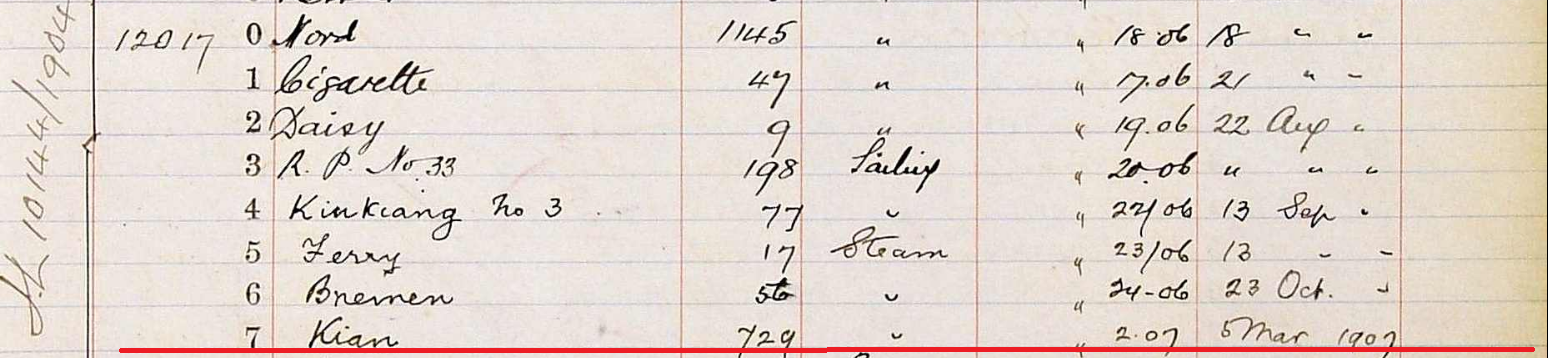 12017 0 Nord 1145 " " 18.06 18 " "
1 Cigarette 47 " " 17.06 21 " "
2 Daisy 9 " " 19.06 22 Aug "
3 R. P. No 33 198 Sailing " 20.06 " " "
4 Kiukiang No 3 77 " " 22/06 13 Sep "
5 Ferry 17 Steam " 23/06 13 " "
6 Bremen 56 " " 24-06 23 Oct. "
7 Kian 729 " " 2.07 5 Mar 1907
10144/1904